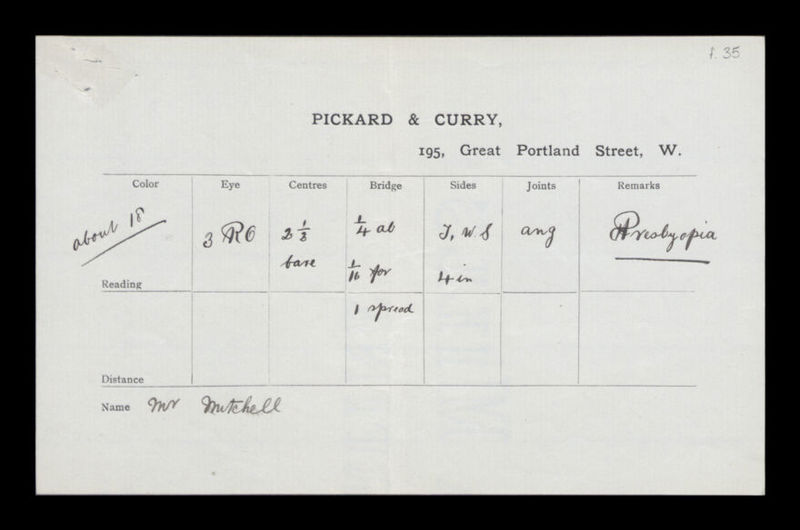 f. 35
PICKARD & CURRY,
195, Great Portland Street, W.
Color Eye Centres Bridge Sides Joints Remarks
about 18 3 RO 2 1/8 1/4 ab J, W S ang Presbyopia
bare 1/16 for 4 in
Reading
1 spread
Distance
Name Mr Mitchell